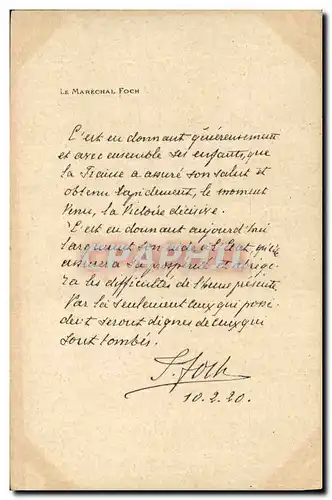 LE MARÉCHAL FOCH
C'est en donnant généreusement
et avec ensemble ses enfants, que
la France a assuré son salut et
obtenu rapidement, le moment
venu, la Victoire décisive.
C'est en donnant aujourd'hui
largement son à l'Etat qu'elle
assurera sa prospérité
ra les difficultés de l'heure présente.
Par là seulement ceux qui possè-
dent seront dignes de ceux qui
sont tombés.
F. Foch
10.2.20.